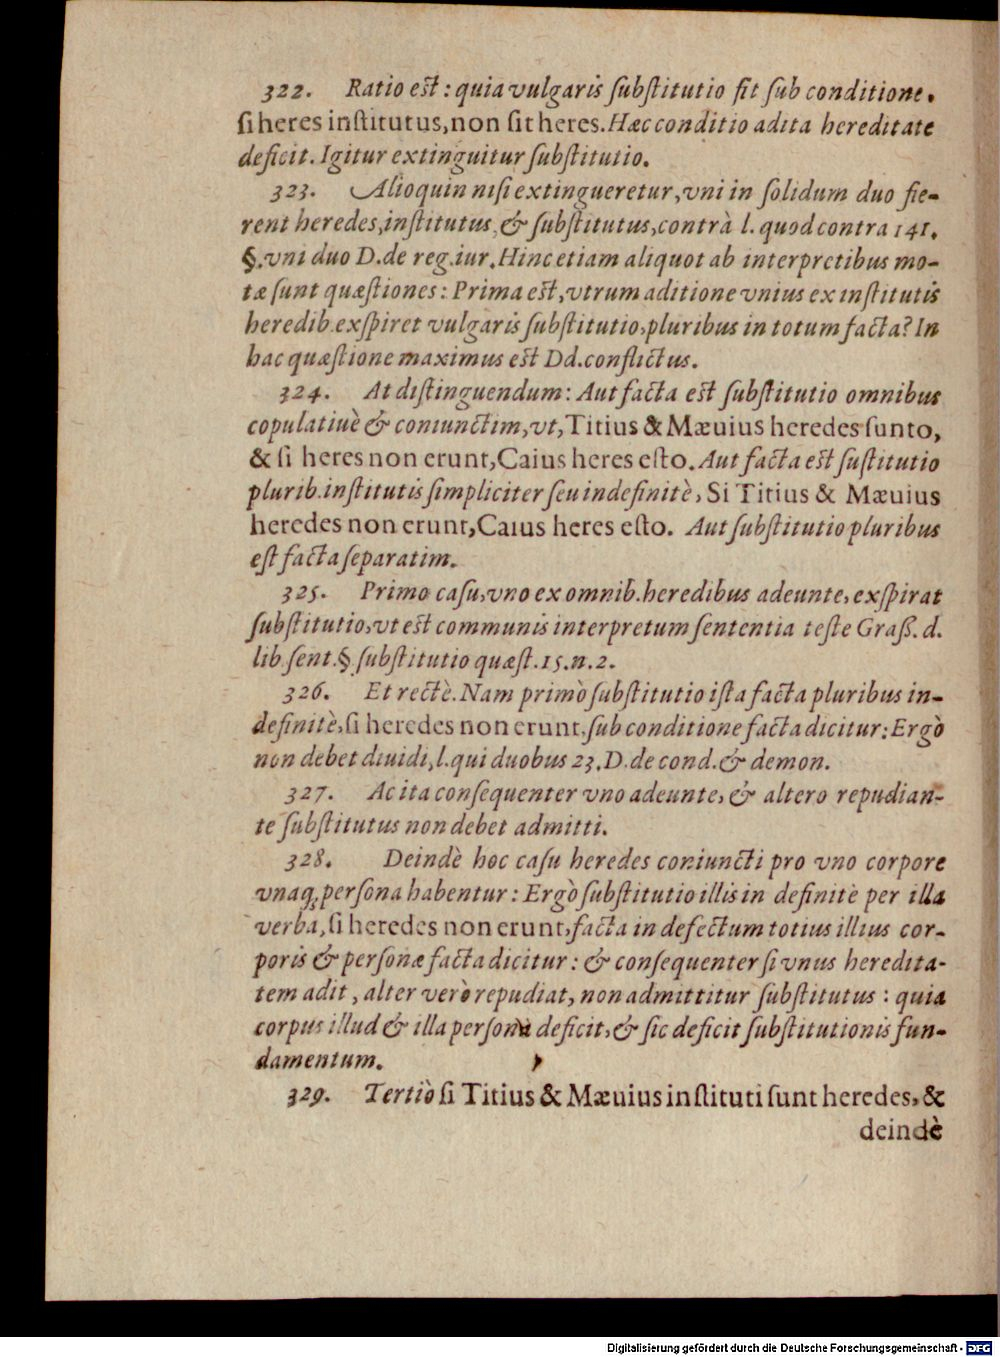 322. Ratio est: quia vulgaris substitutio fit sub conditione.
si heres institutus, non sit heres. Hæc conditio adita hereditate
deficit. Igitur extinguitur substitutio.
323. Alioquin nisi extingueretur, vni in solidum duo fie-
rent heredes, institutus, & substitutus, contrà l. quod contra 141.
§. vni duo D. de reg. iur. Hinc etiam aliquot ab interpretibus mo-
tæ sunt quæstiones: Prima est, vtrum aditione vnius ex institutis
heredib. exspiret vulgaris substitutio, pluribus in totum facta? In
hac quæstione maximus est Dd. conflictus.
324. At distinguendum: Aut facta est substitutio omnibus
copulatiuè & coniunctim, vt, Titius & Mæuius heredes sunto,
& si heres non erunt, Caius heres esto. Aut facta est sustitutio
plurib. institutis simpliciter seu indefinitè, Si Titius & Mæuius
heredes non erunt, Caius heres esto. Aut substitutio pluribus
est facta separatim.
325. Primo casu, vno ex omnib. heredibus adeunte, exspirat
substitutio, vt est communis interpretum sententia teste Graß. d.
lib. sent. §. substitutio quæst. 15. n. 2.
326. Et rectè. Nam primò substitutio ista facta pluribus in-
definitè, si heredes non erunt, sub conditione facta dicitur: Ergò
non debet diuidi, l. qui duobus 23. D. de cond. & demon.
327. Ac ita consequenter vno adeunte, & altero repudian-
te substitutus non debet admitti.
328. Deindè hoc casu heredes coniuncti pro vno corpore
vnaq; persona habentur: Ergò substitutio illis in definitè per illa
verba, si heredes non erunt, facta in defectum totius illius cor-
poris & personæ facta dicitur: & consequenter si vnus heredita-
tem adit, alter verò repudiat, non admittitur substitutus: quia
corpus illud & illa persona deficit, & sic deficit substitutionis fun-
damentum.
329. Tertiò si Titius & Mæuius instituti sunt heredes, &
deindè
Digitalisierung gefördert durch die Deutsche Forschungsgemeinschaft - DFG